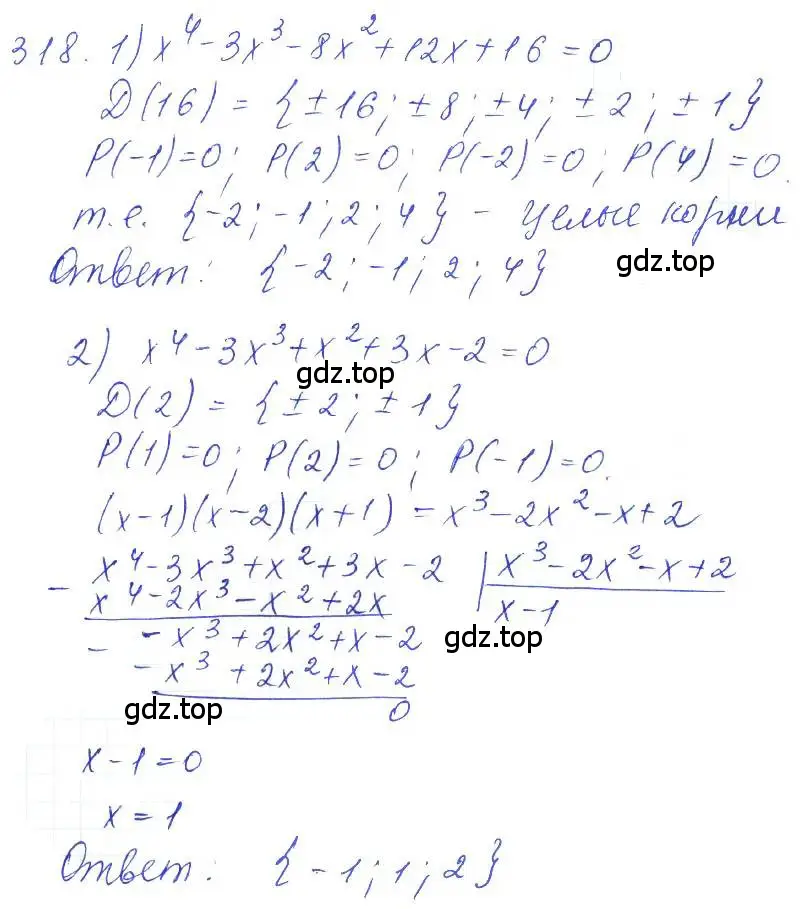 318. 1) x⁴-3x³-8x²+12x+16=0
D(16) = {±16; ±8; ±4; ±2; ±1}
P(-1)=0; P(2)=0; P(-2)=0; P(4)=0.
т.е. {-2; -1; 2; 4} - целые корни
Ответ: {-2; -1; 2; 4}
gdz.top
2) x⁴-3x³+x²+3x-2=0
gdz.top
D(2) = {±2; ±1}
P(1)=0; P(2)=0; P(-1)=0.
(x-1)(x-2)(x+1) = x³-2x²-x+2
- x⁴-3x³+x²+3x-2 | x³-2x²-x+2
x⁴-2x³-x²+2x x-1
- -x³+2x²+x-2 gdz.top
-x³+2x²+x-2
gdz.top 0
x-1=0
x=1
Ответ: {-1; 1; 2}